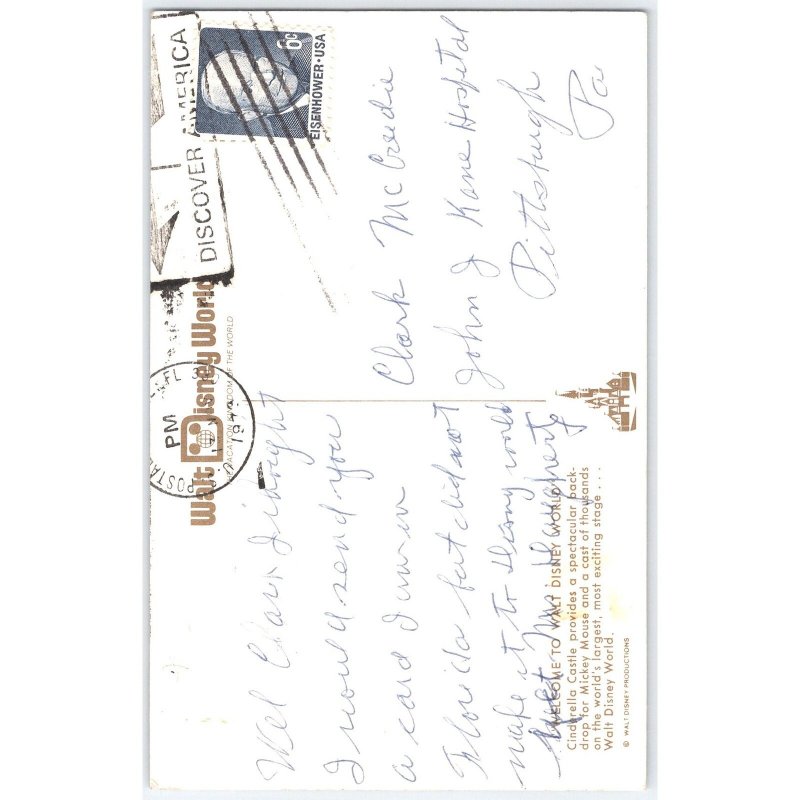 Walt Disney World
A VACATION KINGDOM OF THE WORLD
DISCOVER AMERICA
6c
EISENHOWER·USA
POSTAL
PM
Wel Clark I thought
I would send you
a card I am in
Florida but did not
make it to
Clark McCreedie
John J Kane Hospital
Pittsburgh
Pa
WELCOME TO WALT DISNEY WORLD
Cinderella Castle provides a spectacular back-
drop for Mickey Mouse and a cast of thousands
on the world's largest, most exciting stage . . .
Walt Disney World.
© WALT DISNEY PRODUCTIONS